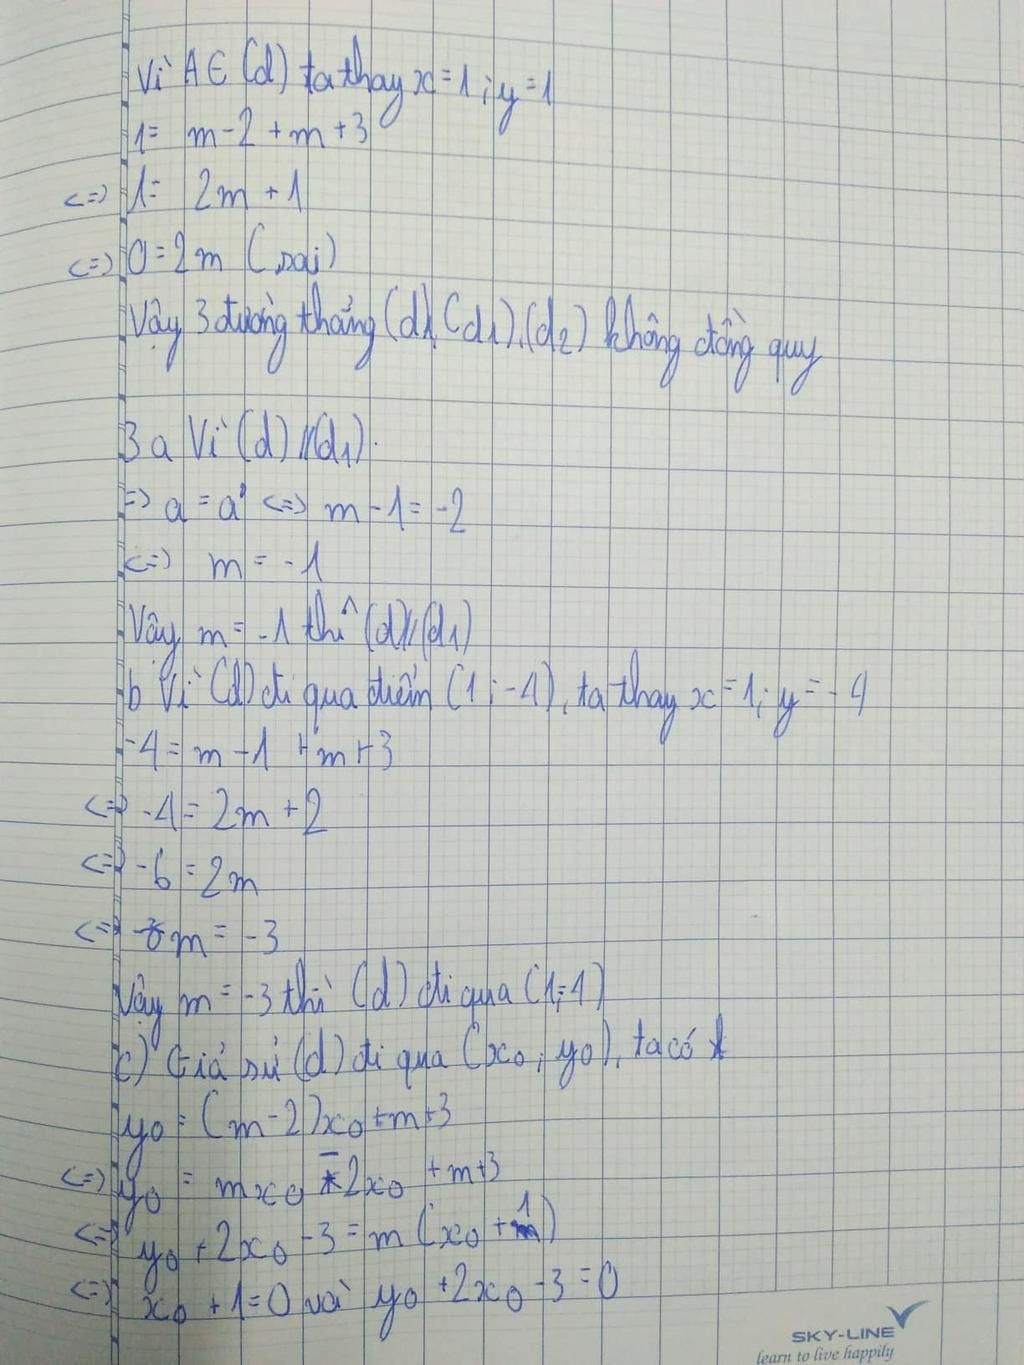 Vì A∈ (d) ta thay x=1; y=1
1= m-2+m+3
<=> 1= 2m+1
<=> 0=2m (sai)
Vậy 3 đường thẳng (d), (d1), (d2) không đồng quy
3 a Vì (d) // (d1).
=> a = a' <=> m-1=-2
<=> m = -1
Vậy m = -1 thì (d)//(d1)
b Vì (d) đi qua điểm (1;-4), ta thay x=1; y=-4
-4= m-1 +m+3
<=> -4= 2m+2
<=> -6=2m
<=> m= -3
Vậy m= -3 thì (d) đi qua (1;4)
c) Giả sử (d) đi qua (x0; y0), ta có
y0 = (m-2)x0+m+3
<=> y0 = mx0 -2x0 +m+3
<=> y0 +2x0 -3=m (x0 +1)
<=> x0 +1=0 và y0 +2x0 -3=0
SKY-LINE
learn to live happily